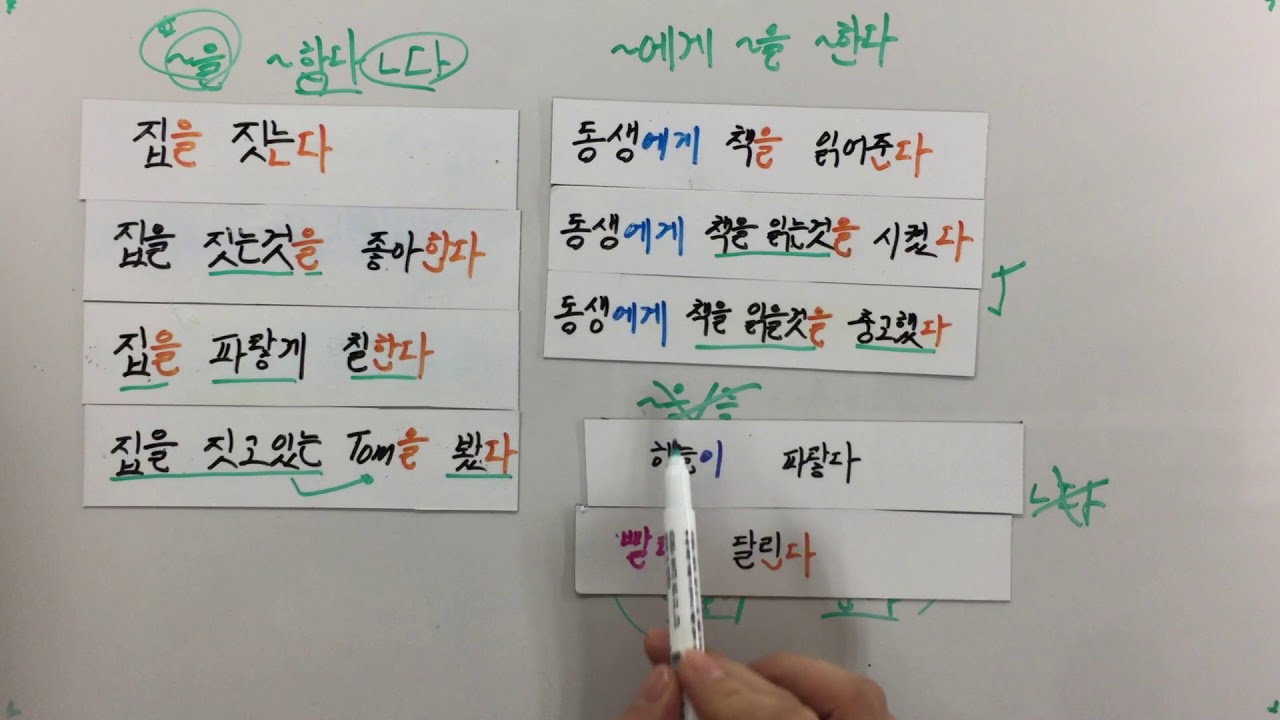 ~을 ~합다 ㄴ다
집을 짓는다
집을 짓는것을 좋아한다
집을 파랗게 칠한다
집을 짓고있는 Tom을 봤다
~에게 ~을 ~한다
동생에게 책을 읽어준다
동생에게 책을 읽는것을 시켰다
동생에게 책을 읽을것을 충고했다
~을/를
파랗다
달린다